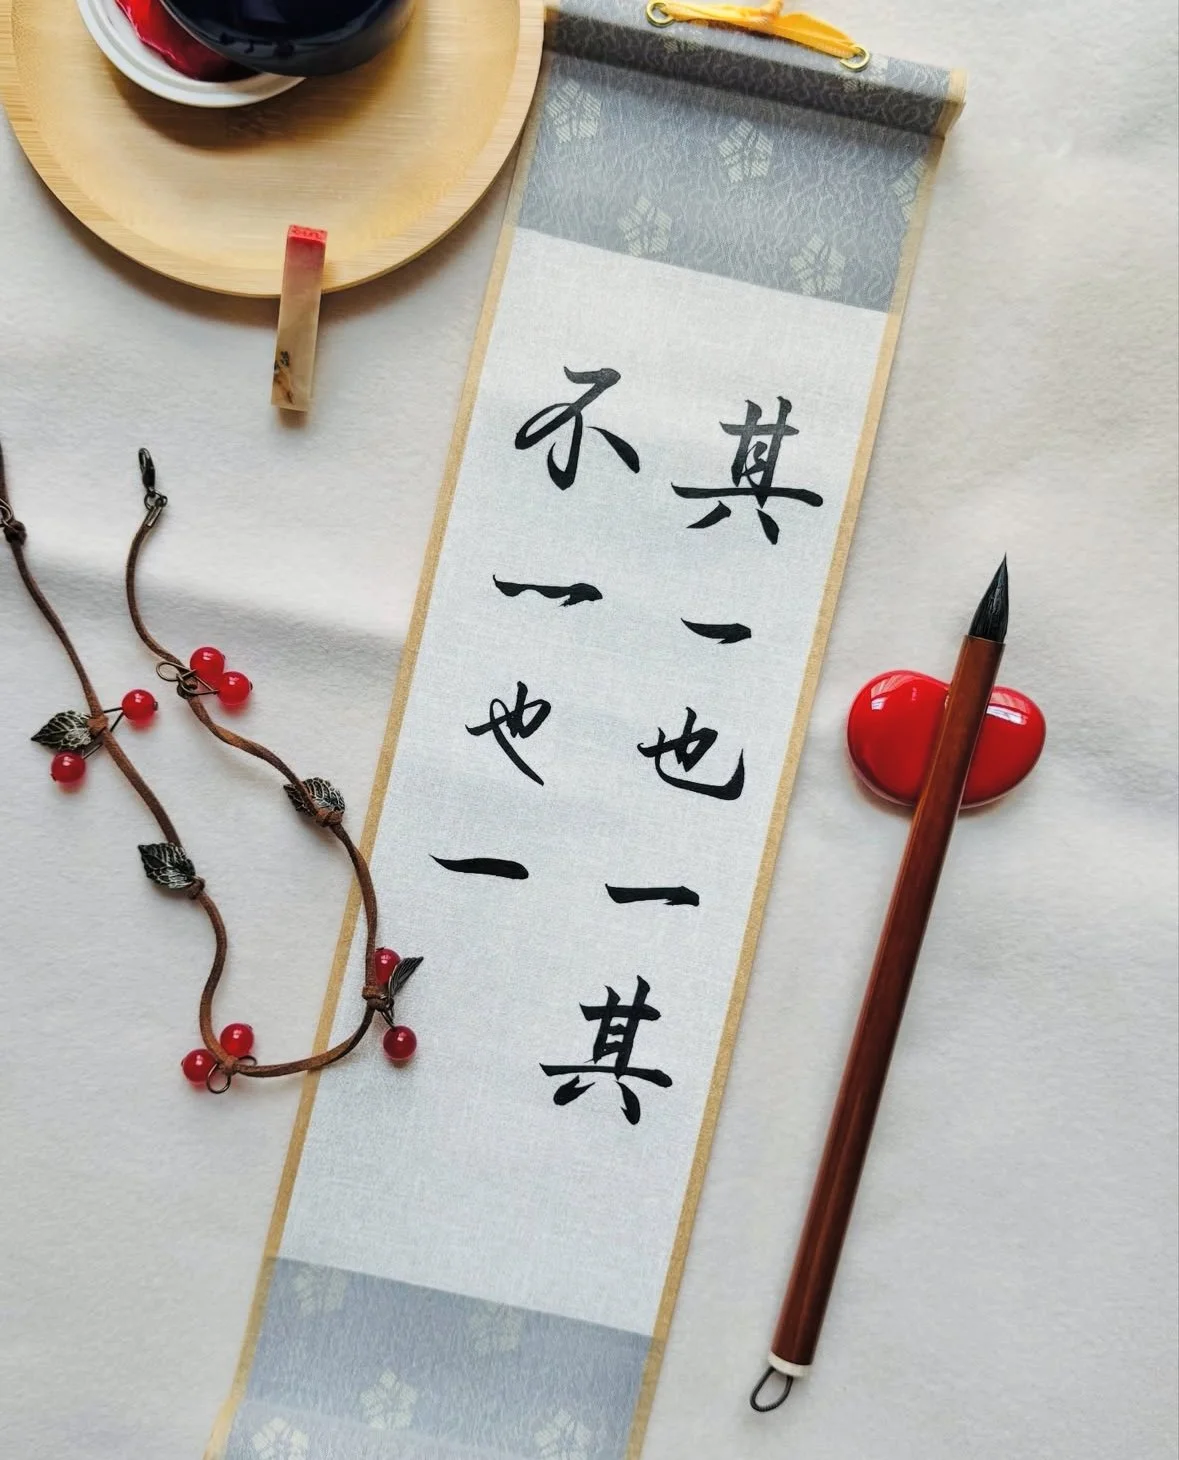 其一也一其
不一也一